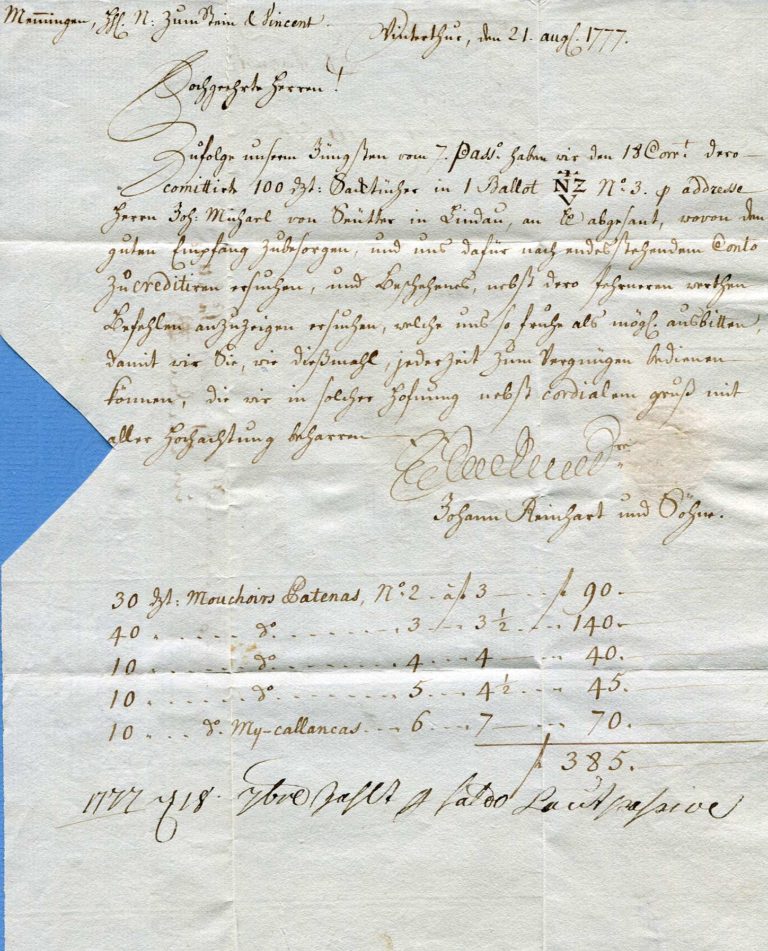 Memmingen, HH. N: Zum Stein & Vincent.
Winterthur, den 21. augs. 1777.
Hochgeehrte Herren!
Zufolge unserem Jüngsten vom 7. Passo. haben wir den 18 Corrt. dero
comittirte 100 dzt: Sacktücher in 1 Ballot NZ No. 3. p addresse
Herrn Joh: Michael von Seutter in Lindau, an abgesant, wovon den
guten Empfang zubesorgen, und uns dafür nach endesstehendem Conto
zu creditiren ersuchen, und Beschehenes, nebst dero fehrneren werthen
Befehlen anzuzeigen ersuchen, welche uns so fruhe als mögl. ausbitten,
damit wir Sie, wie dießmahl, jederzeit zum Vergnügen bedienen
können, die wir in solcher Hofnung nebst cordialem gruß mit
aller Hochachtung beharren
Johann Reinhart und Söhne.
30 dzt: Mouchoirs Patenas, No. 2 .. à f 3 — f 90.
40 " do. 3 3 1/2 140.
10 " do. 4 4 40.
10 " do. 5 4 1/2 45.
10 " do. My-callancas 6 7 70.
f 385.
1777 18 7bre zahlt p saldo Laut